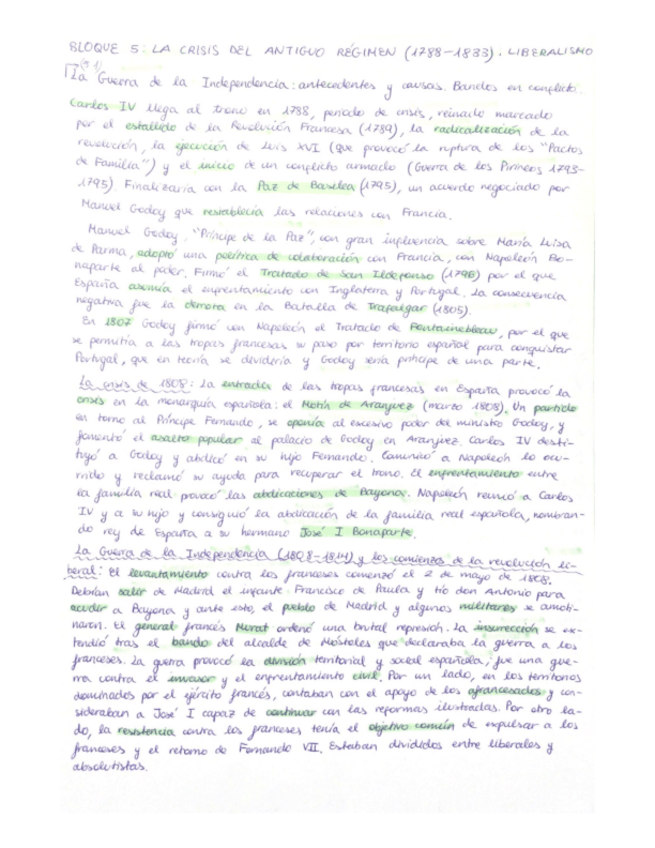 BLOQUE 5: LA CRISIS DEL ANTIGUO RÉGIMEN (1788-1833). LIBERALISMO
(5.1)
La Guerra de la Independencia: antecedentes y causas. Bandos en conflicto.
Carlos IV llega al trono en 1788, periodo de crisis, reinado marcado
por el estallido de la Revolución Francesa (1789), la radicalización de la
revolución, la ejecución de Luis XVI (que provocó la ruptura de los "Pactos
de Familia") y el inicio de un conflicto armado (Guerra de los Pirineos 1793-
1795). Finalizaría con la Paz de Basilea (1795), un acuerdo negociado por
Manuel Godoy que restablecía las relaciones con Francia.
Manuel Godoy, "Príncipe de la Paz", con gran influencia sobre María Luisa
de Parma, adoptó una política de colaboración con Francia, con Napoleón Bo-
naparte al poder. Firmó el Tratado de San Ildefonso (1796) por el que
España asumía el enfrentamiento con Inglaterra y Portugal. La consecuencia
negativa fue la derrota en la Batalla de Trafalgar (1805).
En 1807 Godoy firmó con Napoleón el Tratado de Fontainebleau, por el que
se permitía a las tropas francesas su paso por territorio español para conquistar
Portugal, que en teoría se dividiría y Godoy sería príncipe de una parte.
La crisis de 1808: La entrada de las tropas francesas en España provocó la
crisis en la monarquía española: el Motín de Aranjuez (marzo 1808). Un partido
en torno al Príncipe Fernando, se oponía al excesivo poder del ministro Godoy, y
fomentó el asalto popular al palacio de Godoy en Aranjuez. Carlos IV desti-
tuyó a Godoy y abdicó en su hijo Fernando. Comunicó a Napoleón lo ocu-
rrido y reclamó su ayuda para recuperar el trono. El enfrentamiento entre
la familia real provocó las abdicaciones de Bayona. Napoleón reunió a Carlos
IV y a su hijo y consiguió la abdicación de la familia real española, nombran-
do rey de España a su hermano José I Bonaparte.
La Guerra de la Independencia (1808-1814) y los comienzos de la revolución li-
beral: El levantamiento contra los franceses comenzó el 2 de mayo de 1808.
Debían salir de Madrid el infante Francisco de Paula y tío don Antonio para
acudir a Bayona y ante esto, el pueblo de Madrid y algunos militares se amoti-
naron. El general francés Murat ordenó una brutal represión. La insurrección se ex-
tendió tras el bando del alcalde de Móstoles que declaraba la guerra a los
franceses. La guerra provocó la división territorial y social española, fue una gue-
rra contra el invasor y el enfrentamiento civil. Por un lado, en los territorios
dominados por el ejército francés, contaban con el apoyo de los afrancesados y con-
sideraban a José I capaz de continuar con las reformas ilustradas. Por otro la-
do, la resistencia contra los franceses tenía el objetivo común de expulsar a los
franceses y el retorno de Fernando VII. Estaban divididos entre liberales y
absolutistas.